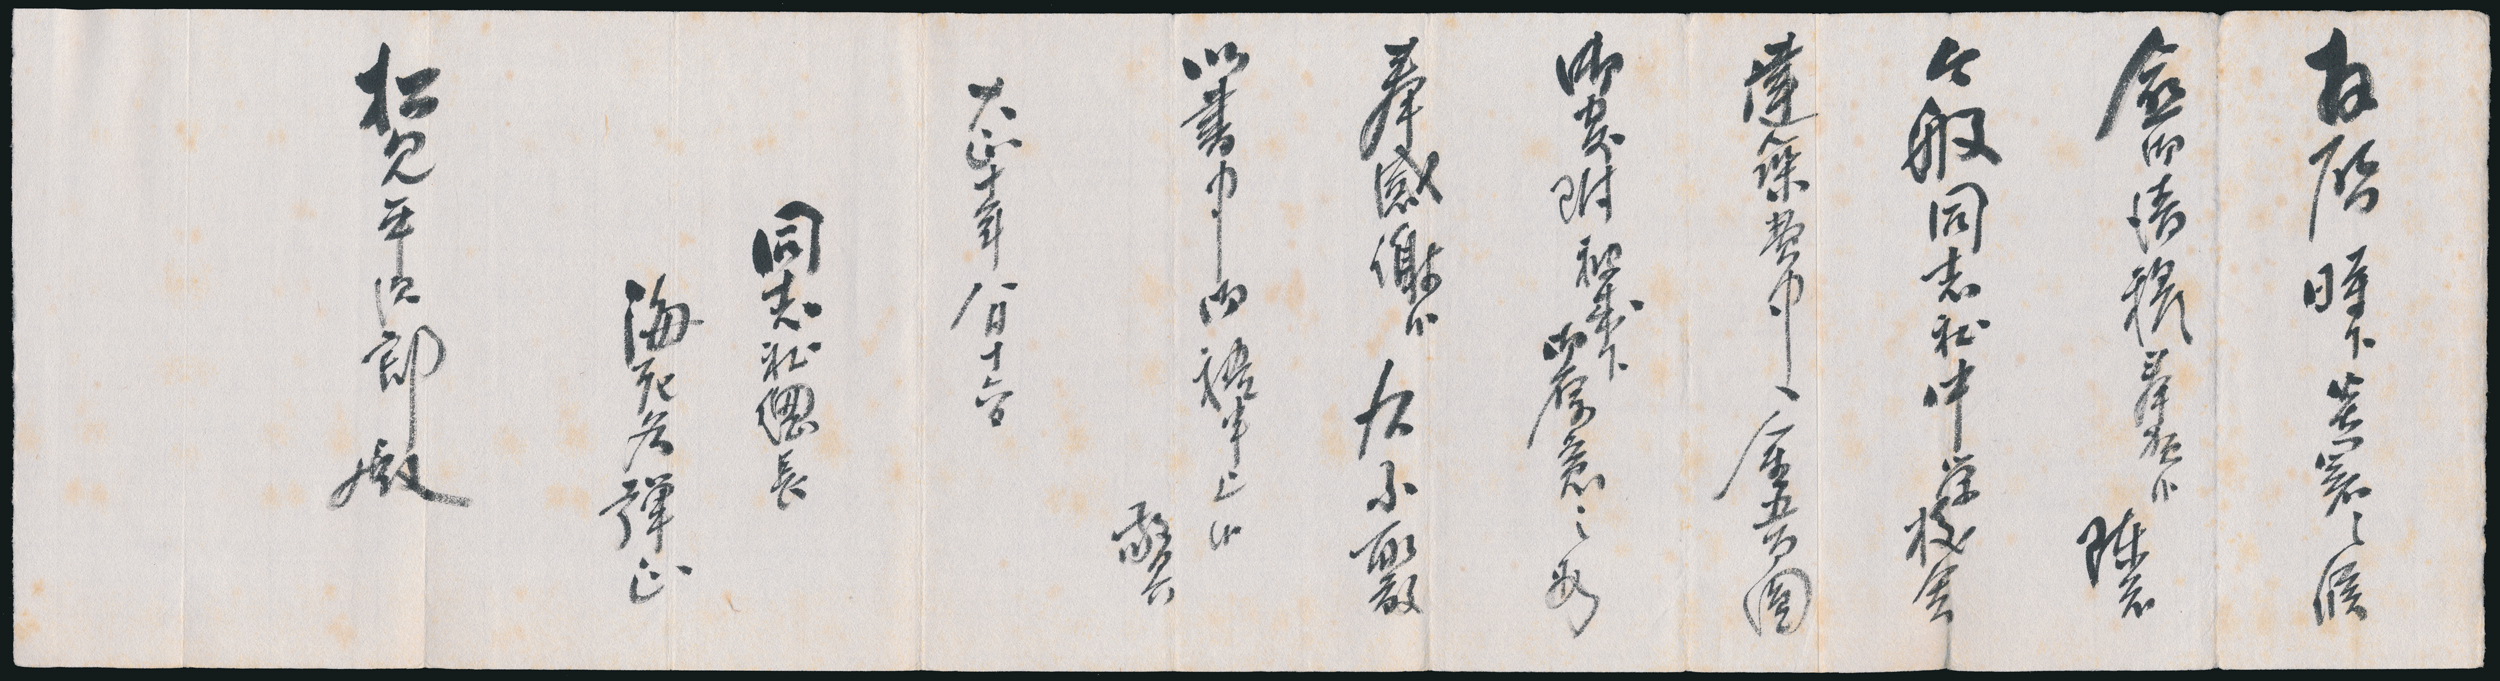 拝啓 時下炎暑之候
愈御清穆奉賀候 陳者
今般同志社中学校舎
建築費中へ金五百圓
御寄附被成下御厚意之段
奉感謝候 右不取敢
以書中御禮申上候
敬具
大正十年八月十六日
同志社總長
海老名彈正
松見平治郎殿